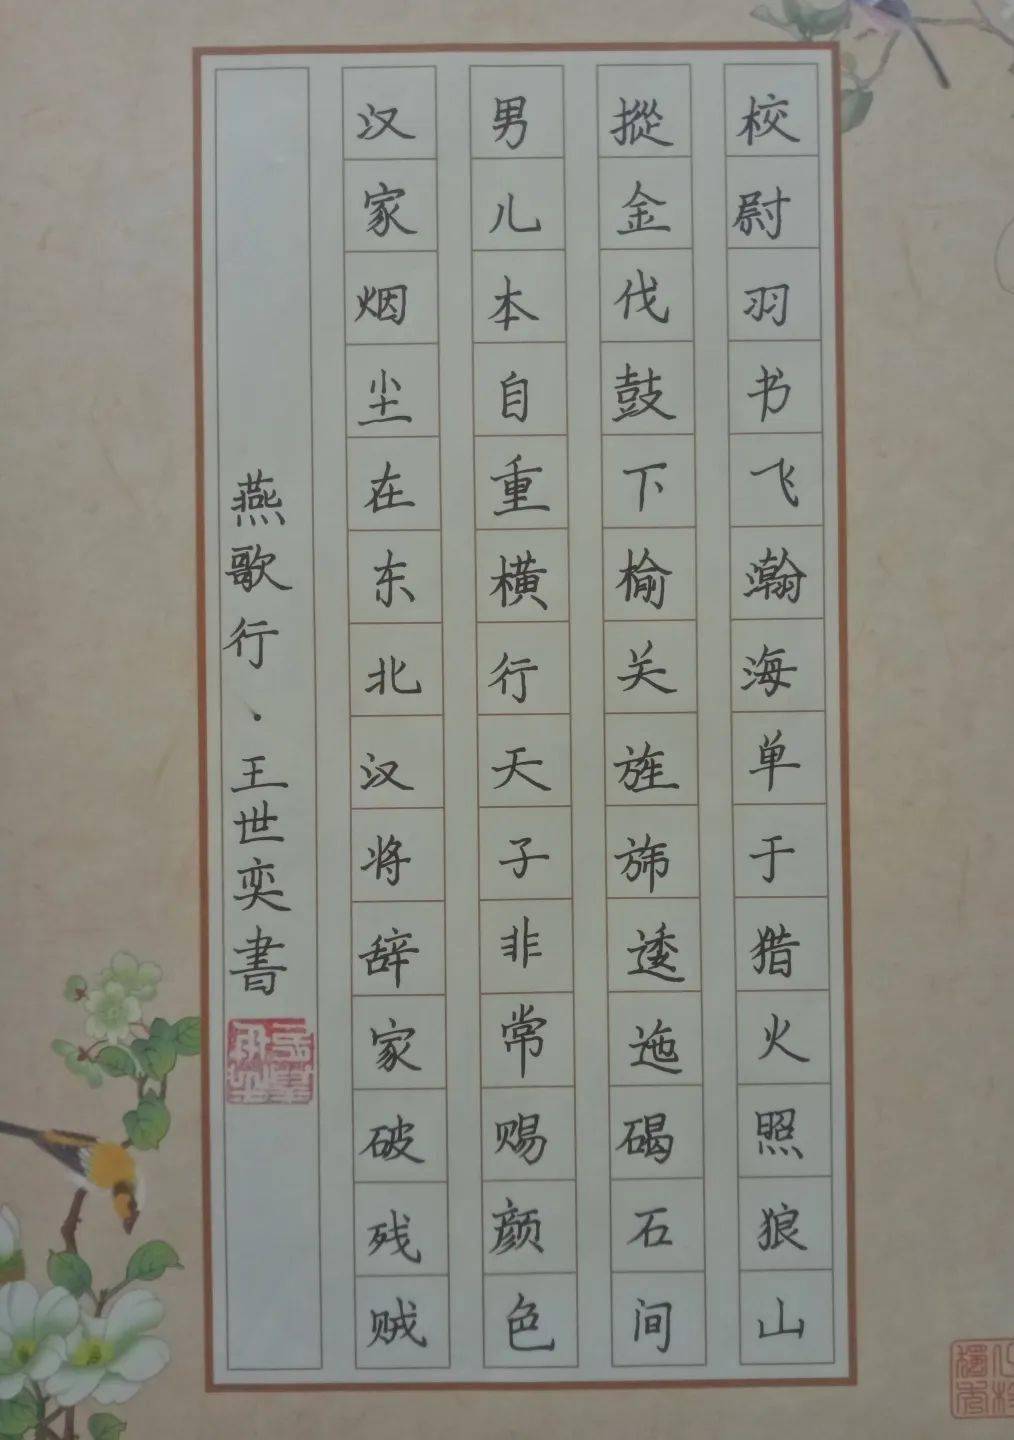 燕歌行·王世奕書
汉家烟尘在东北汉将辞家破残贼
男儿本自重横行天子非常赐颜色
摐金伐鼓下榆关旌旆逶迤碣石间
校尉羽书飞瀚海单于猎火照狼山